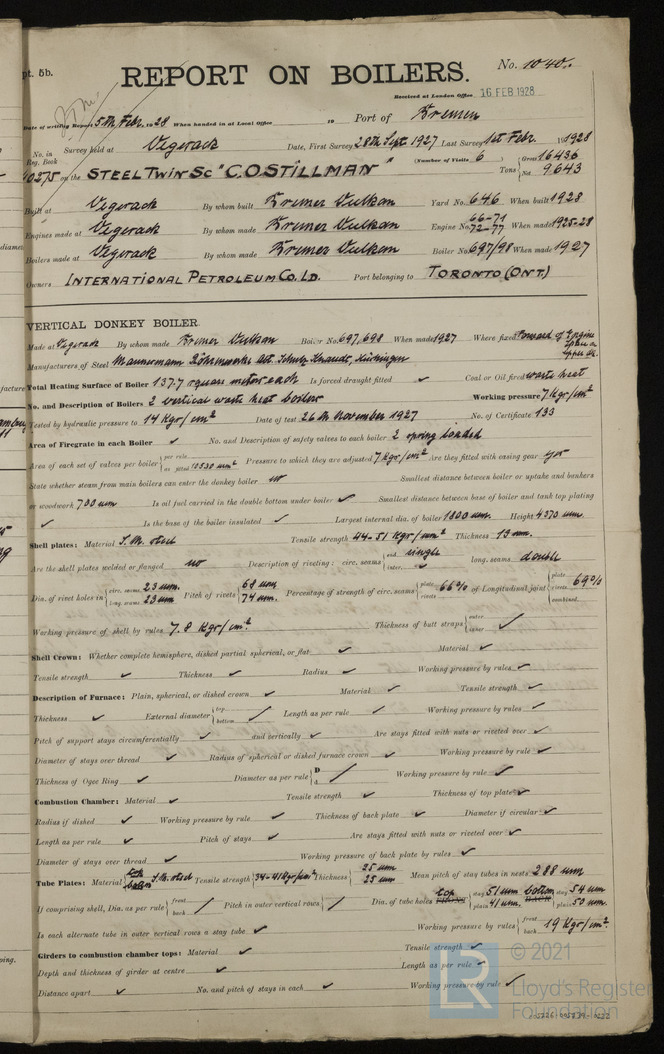 pt. 5b.
REPORT ON BOILERS.
No. 1040.
Received at London Office 16 FEB 1928
Date of writing Report 5th Febr. 1928 When handed in at Local Office 19 Port of Bremen
No. in Reg. Book Survey held at Vegesack Date, First Survey 28th Sept. 1927 Last Survey 1st Febr. 1928
(Number of Visits 6)
on the STEEL TWIN SC "C.O. STILLMAN" Tons Gross 16436 Net 9643
Built at Vegesack By whom built Bremer Vulkan Yard No. 646 When built 1928
Engines made at Vegesack By whom made Bremer Vulkan Engine No. 66-71 72-77 When made 1925-28
Boilers made at Vegesack By whom made Bremer Vulkan Boiler No. 697/98 When made 1927
Owners INTERNATIONAL PETROLEUM CO. LD. Port belonging to TORONTO (ONT.)
VERTICAL DONKEY BOILER.
Made at Vegesack By whom made Bremer Vulkan Boiler No. 697, 698 When made 1927 Where fixed Forward of Engine
Manufacturers of Steel
Total Heating Surface of Boiler 137.7 square meter each Is forced draught fitted ✓ Coal or Oil fired waste heat
No. and Description of Boilers 2 vertical waste heat boilers Working pressure 7 Kgr/cm²
Tested by hydraulic pressure to 14 Kgr/cm² Date of test 26th November 1927 No. of Certificate 133
Area of Firegrate in each Boiler ✓ No. and Description of safety valves to each boiler 2 spring loaded
Area of each set of valves per boiler per rule as fitted Pressure to which they are adjusted 7 Kgr/cm² Are they fitted with easing gear yes
State whether steam from main boilers can enter the donkey boiler no Smallest distance between boiler or uptake and bunkers
or woodwork 700 mm Is oil fuel carried in the double bottom under boiler ✓ Smallest distance between base of boiler and tank top plating
✓ Is the base of the boiler insulated ✓ Largest internal dia. of boiler 1800 mm. Height 4370 mm
Shell plates: Material S.M. steel Tensile strength 44-51 Kgr/mm² Thickness 13 mm.
Are the shell plates welded or flanged no Description of riveting: circ. seams end single inter. ✓ long. seams double
Dia. of rivet holes in circ. seams 23 mm. long. seams 23 mm Pitch of rivets 68 mm 74 mm. Percentage of strength of circ. seams plate rivets 66% of Longitudinal joint plate rivets combined 69%
Working pressure of shell by rules 7.8 Kgr/cm² Thickness of butt straps outer inner ✓
Shell Crown: Whether complete hemisphere, dished partial spherical, or flat ✓ Material ✓
Tensile strength ✓ Thickness ✓ Radius ✓ Working pressure by rules ✓
Description of Furnace: Plain, spherical, or dished crown ✓ Material ✓ Tensile strength ✓
Thickness ✓ External diameter top bottom ✓ Length as per rule ✓ Working pressure by rules ✓
Pitch of support stays circumferentially ✓ and vertically ✓ Are stays fitted with nuts or riveted over ✓
Diameter of stays over thread ✓ Radius of spherical or dished furnace crown ✓ Working pressure by rule ✓
Thickness of Ogee Ring ✓ Diameter as per rule D d / Working pressure by rule ✓
Combustion Chamber: Material ✓ Tensile strength ✓ Thickness of top plate ✓
Radius if dished ✓ Working pressure by rule ✓ Thickness of back plate ✓ Diameter if circular ✓
Length as per rule ✓ Pitch of stays ✓ Are stays fitted with nuts or riveted over ✓
Diameter of stays over thread ✓ Working pressure of back plate by rules ✓
Tube Plates: Material S.M. steel Tensile strength 34-41 Kgr/mm² Thickness 25 mm 25 mm Mean pitch of stay tubes in nests 288 mm
If comprising shell, Dia. as per rule front back / Pitch in outer vertical rows / Dia. of tube holes top stay 51 mm plain 41 mm. bottom stay 54 mm plain 50 mm.
Is each alternate tube in outer vertical rows a stay tube ✓ Working pressure by rules front back 19 Kgr/cm².
Girders to combustion chamber tops: Material ✓ Tensile strength ✓
Depth and thickness of girder at centre ✓ Length as per rule ✓
Distance apart ✓ No. and pitch of stays in each ✓ Working pressure by rule ✓
© 2021
Lloyd's Register
Foundation
LR